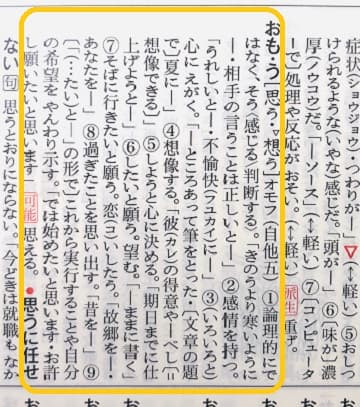 症状(ショウジョウ)つわりが―▽ ⑤おしつ
けられるような(いやな)感じだ。「頭が―」⑥〔味が〕濃
厚(ノウコウ)だ。「―ソース」(↔軽い)⑦〔コンピュータ
ーで〕処理や反応がおそい。(↔軽い) 派生 重げ。
おも・う［思う・▽想う］オモフ〔自他五〕①論理的にで
はなく、そう感じる。判断する。「きのうより寒いように
―・相手の言うことは正しいと―」②感情を持つ。
「うれしいと―・不愉快(ユカイ)に―」③(いろいろと)
心にえがく。「―ところあって筆をとった・〔文章の題
で〕夏に―」④想像する。「彼(カレ)の得意や―べし(=
想像できる)」⑤しようと心に決める。「期日までに仕
上げようと―」⑥したいと願う。望む。「―ままに書く」
⑦そばに行きたいと願う。恋(コ)いしたう。「故郷を―・
あなたを―」⑧過ぎたことを思い出す。「昔を―」⑨
〔「(…たいと)―」の形で〕これから実行することや自分
の希望をやんわり示す。「では始めたいと思います・お許
し願いたいと思います」 可能 思える。●思うに任せ
ない 句 思うとおりにならない。「今どきは就職も なか